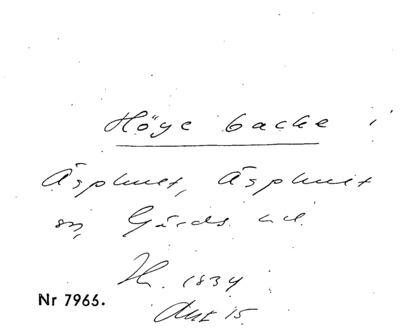 Höge backe i
Äsphult, Äsphult
sn, Gärds hd.
1834
Nr 7965.
Akt 15